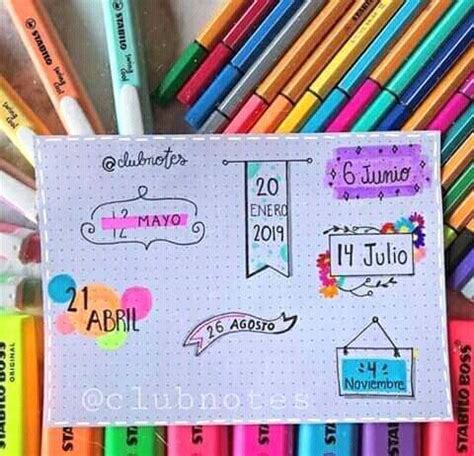 STABILO swing cool
STABILO swing cool
STABILO
@clubnotes
12 MAYO
20
ENERO
2019
6 Junio
14 Julio
21
ABRIL
26 AGOSTO
4
Noviembre
@clubnotes
STABILO BOSS
ORIGINAL
STABILO
STABILO
STABILO BOSS